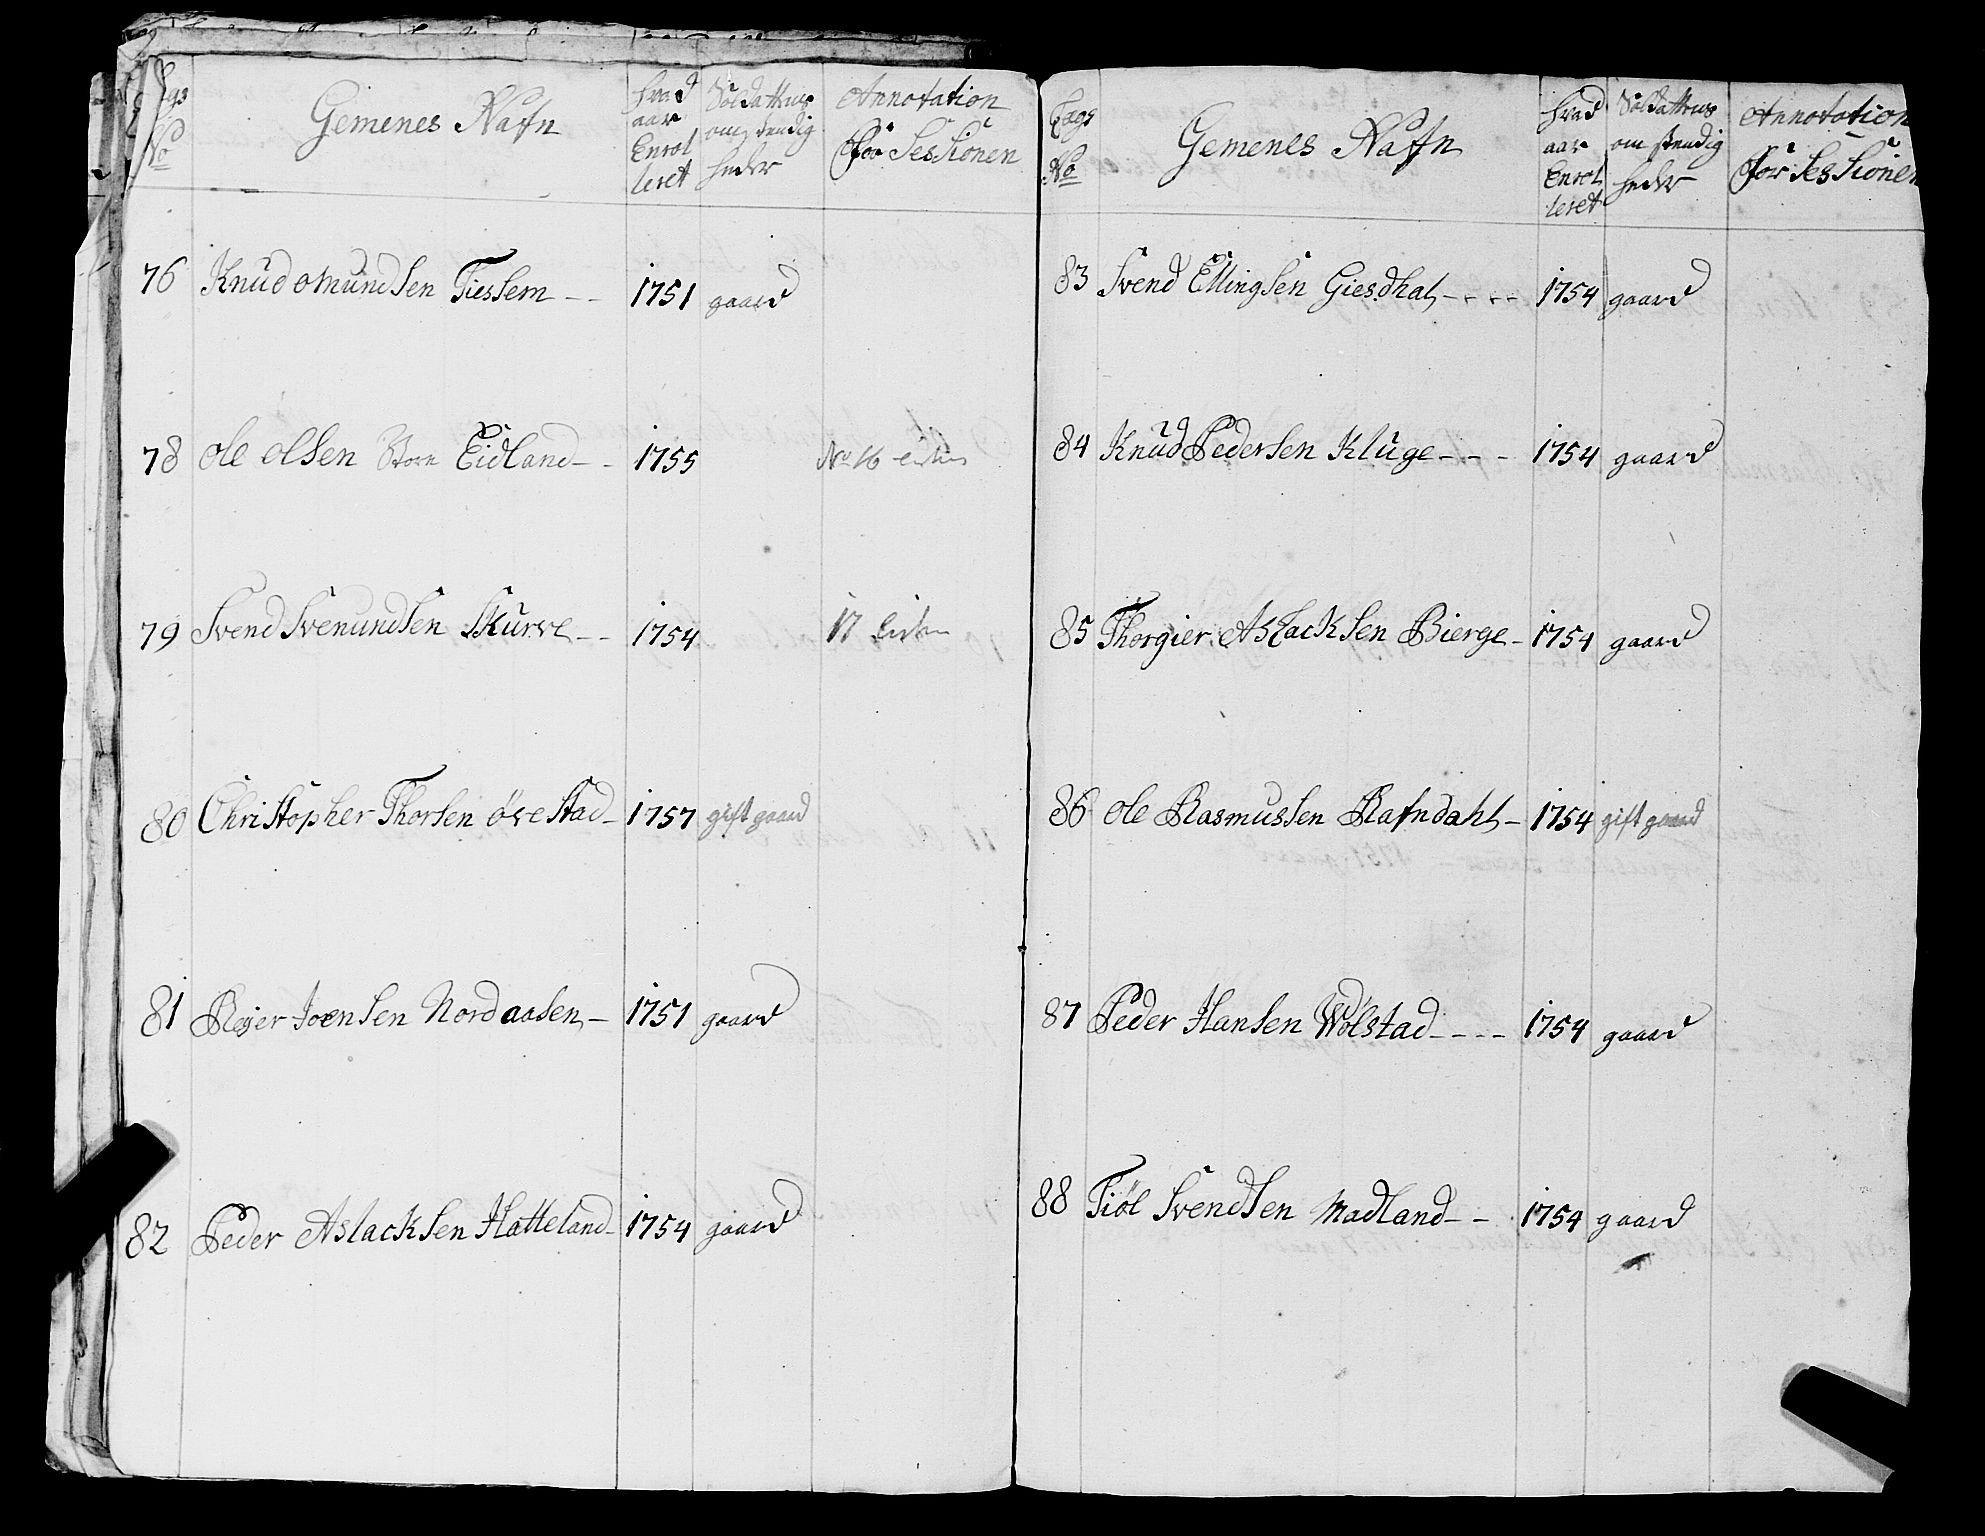 Lægs No
Gemenes Nafn
hvad aar Enrolleret
Soldatens omstendigheder
Annotation for Sessionen
76 Knud omundsen Tiessem -- 1751 gaard
78 ole olsen Store Eidland -- 1755 No 16
79 Svend Svenundsen Skurve -- 1754 17
80 Christopher Thorsen öve stad - 1757 gift gaard
81 Rejer Joensen Nordaasen - 1751 gaard
82 Peder Aslacksen Hatteland - 1754 gaard
Lægs No
Gemenes Nafn
hvad aar Enrolleret
Soldatens omstendigheder
Annotation for Sessionen
83 Svend Ellingsen Giesdhal ---- 1754 gaard
84 Knud Pedersen Kluge --- 1754 gaard
85 Thorgier Aslacksen Bierge - 1754 gaard
86 ole Rasmussen Rafndahl - 1754 gift gaard
87 Peder Hansen Wølstad ---- 1754 gaard
88 Tiøl Svendsen Madland -- 1754 gaard